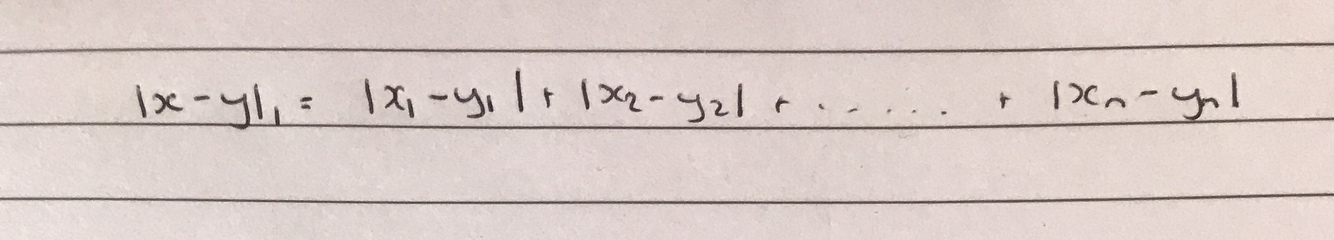 |x-y|₁ = |x₁-y₁| + |x₂-y₂| + ...... + |xₙ-yₙ|